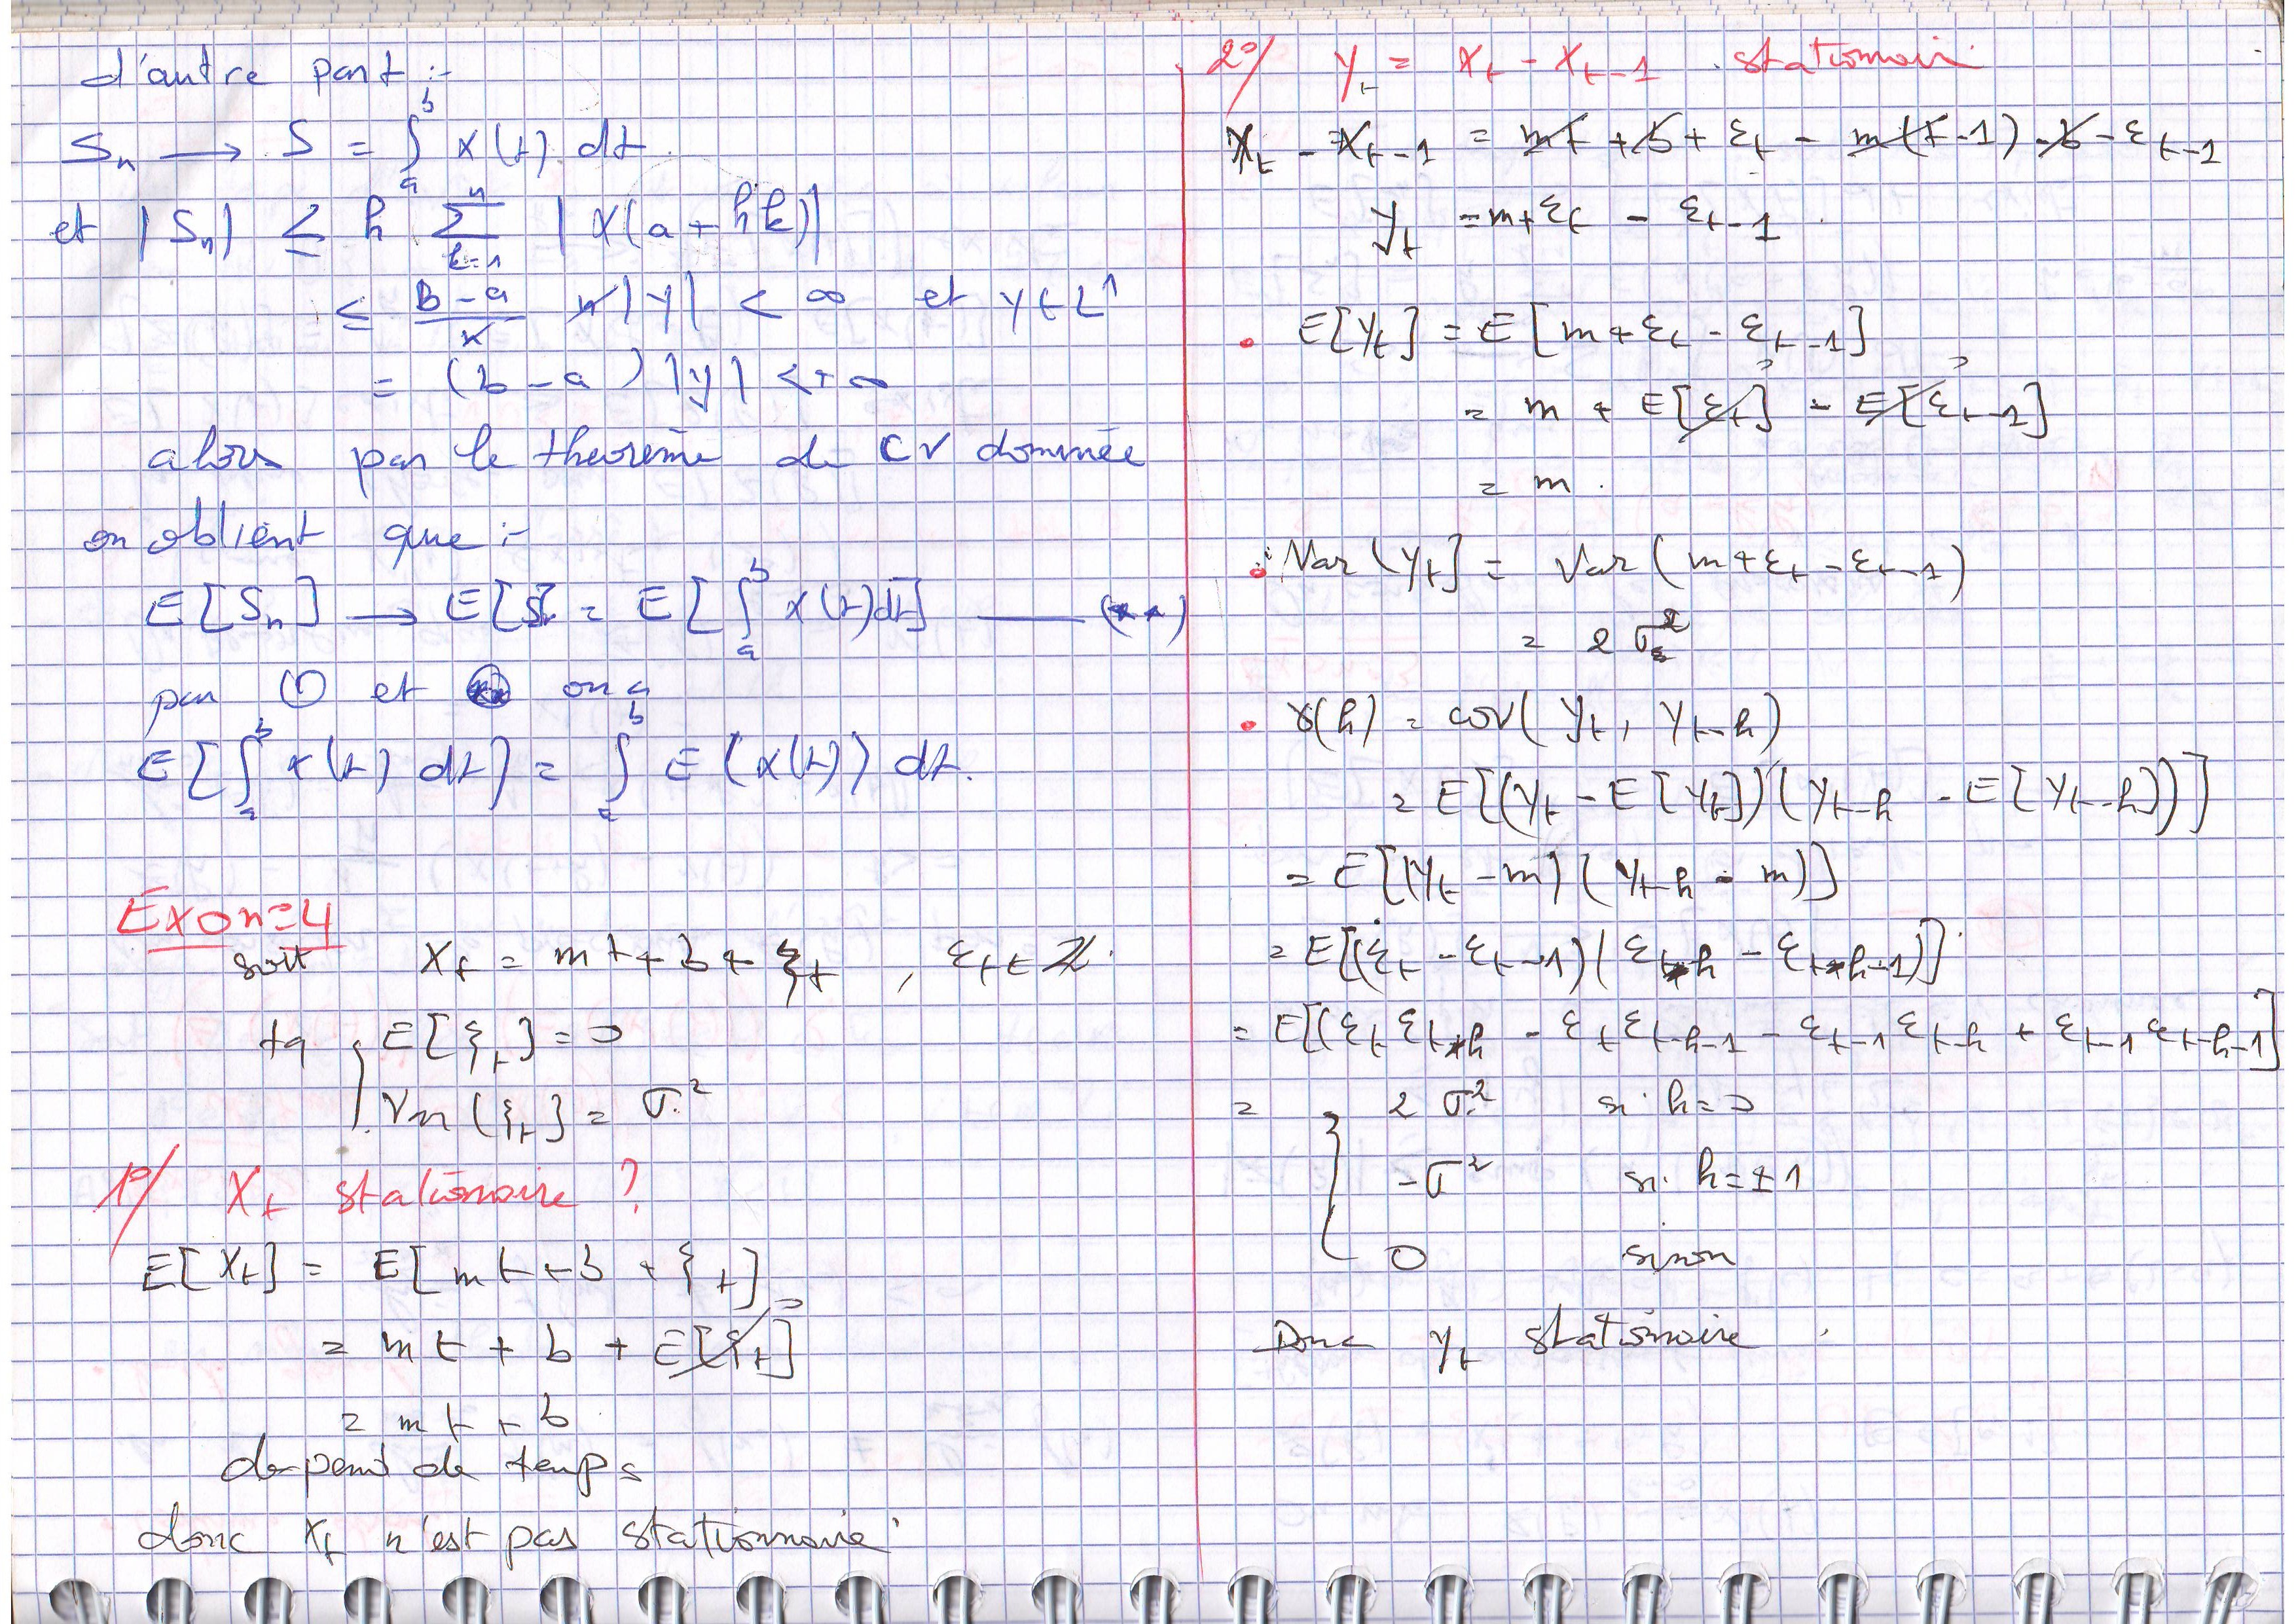 d'autre part :-
Sn ⟶ S = ∫_a^b X(t) dt.
et |Sn| ≤ h ∑_{k=1}^n |X(a+hk)|
≤ (b-a)/n n|Y| < ∞ et Y ∈ L¹
= (b-a)|Y| < +∞
alors par le théorème de CV dominée
on obtient que :-
E[Sn] ⟶ E[S] = E[∫_a^b X(t)dt] —— (**)
par (*) et (**) on a
E[∫_a^b X(t) dt] = ∫_a^b E(X(t)) dt.
Exo n=4
soit X_t = mt + b + ξ_t , ε_t ∈ Z.
tq { E[ξ_t] = 0
Var(ξ_t] = σ²
1°/ X_t stationaire ?
E[X_t] = E[mt + b + ξ_t]
= mt + b + E[ξ_t] 0
= mt + b
depend de temps
donc X_t n'est pas stationnaire
2°/ Y_t = X_t - X_{t-1} . stationair
X_t - X_{t-1} = mt + b + ε_t - m(t-1) - b - ε_{t-1}
Y_t = m + ε_t - ε_{t-1} .
• E[Y_t] = E[m + ε_t - ε_{t-1}]
= m + E[ε_t] - E[ε_{t-1}]
= m .
• Var(Y_t] = Var(m + ε_t - ε_{t-1})
= 2 σ_ε²
• γ(h) = cov(Y_t, Y_{t-h})
= E[(Y_t - E[Y_t])(Y_{t-h} - E[Y_{t-h}))]
= E[(Y_t - m)(Y_{t-h} - m)]
= E[(ε_t - ε_{t-1})(ε_{t-h} - ε_{t-h-1})]
= E[(ε_t ε_{t-h} - ε_t ε_{t-h-1} - ε_{t-1} ε_{t-h} + ε_{t-1} ε_{t-h-1}]
= { 2 σ² si h = 0
-σ² si h = ±1
0 sinon
Donc Y_t stationaire .